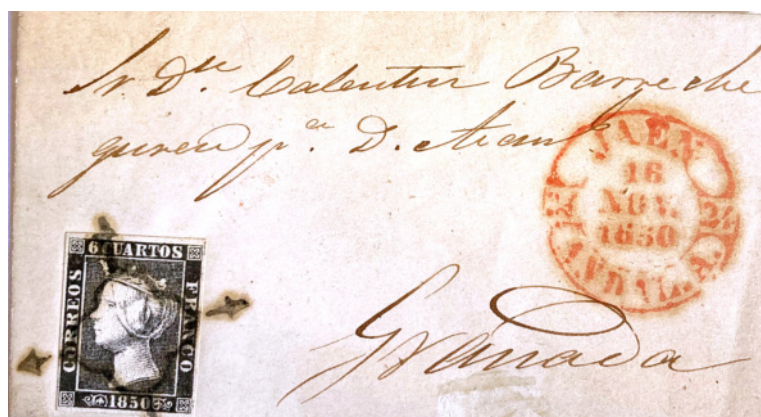 Sr. Dn. Valentin Barreche
guren pr. D.
JAEN
16
NOV.
1850
ANDAL. A.
6 CUARTOS
CORREOS
FRANCO
1850
Granada